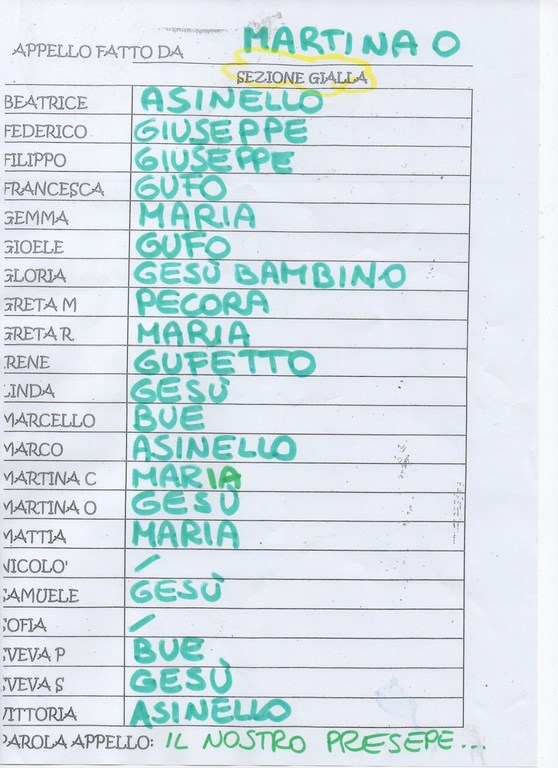 APPELLO FATTO DA MARTINA O
SEZIONE GIALLA
BEATRICE ASINELLO
FEDERICO GIUSEPPE
FILIPPO GIUSEPPE
FRANCESCA GUFO
GEMMA MARIA
GIOELE GUFO
GLORIA GESÙ BAMBINO
GRETA M PECORA
GRETA R MARIA
IRENE GUFETTO
LINDA GESÙ
MARCELLO BUE
MARCO ASINELLO
MARTINA C MARIA
MARTINA O GESÙ
MATTIA MARIA
NICOLO' /
SAMUELE GESÙ
SOFIA /
SVEVA P BUE
SVEVA S GESÙ
VITTORIA ASINELLO
PAROLA APPELLO: IL NOSTRO PRESEPE...